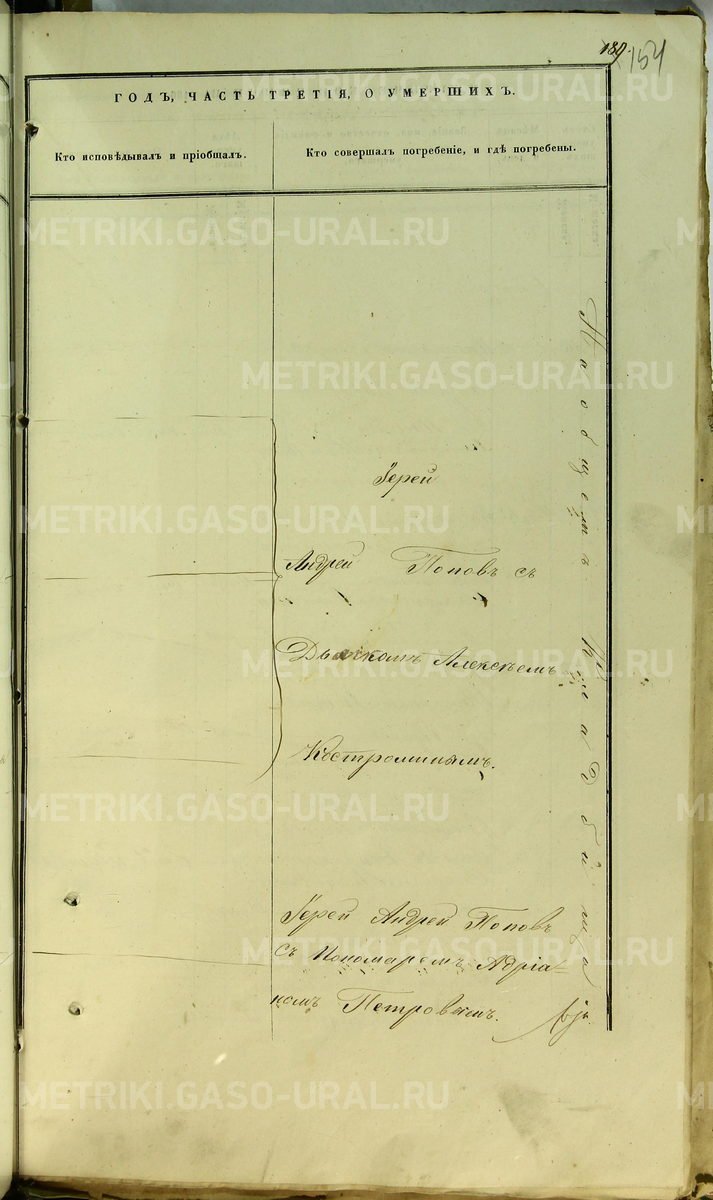 189. 154
ГОДЪ, ЧАСТЬ ТРЕТІЯ, О УМЕРШИХЪ.
Кто исповѣдывалъ и пріобщалъ.
Кто совершалъ погребеніе, и гдѣ погребены.
Іерей
Андрей Поповъ съ
Дьячкомъ Алексѣемъ
Костроминымъ.
Іерей Андрей Поповъ
съ Пономаремъ Адріа=
номъ Петровымъ.
На общемъ кладбищѣ
METRIKI.GASO-URAL.RU